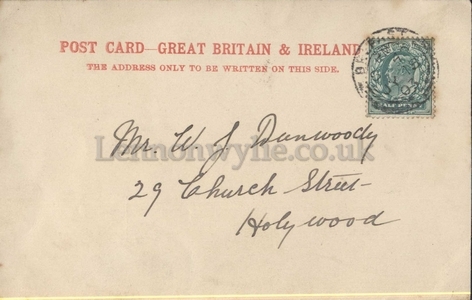 POST CARD—GREAT BRITAIN & IRELAND
THE ADDRESS ONLY TO BE WRITTEN ON THIS SIDE.
Mr. W. J Dunwoody
Lennonwylie.co.uk
29 Church Street
Holywood
HALF PENNY